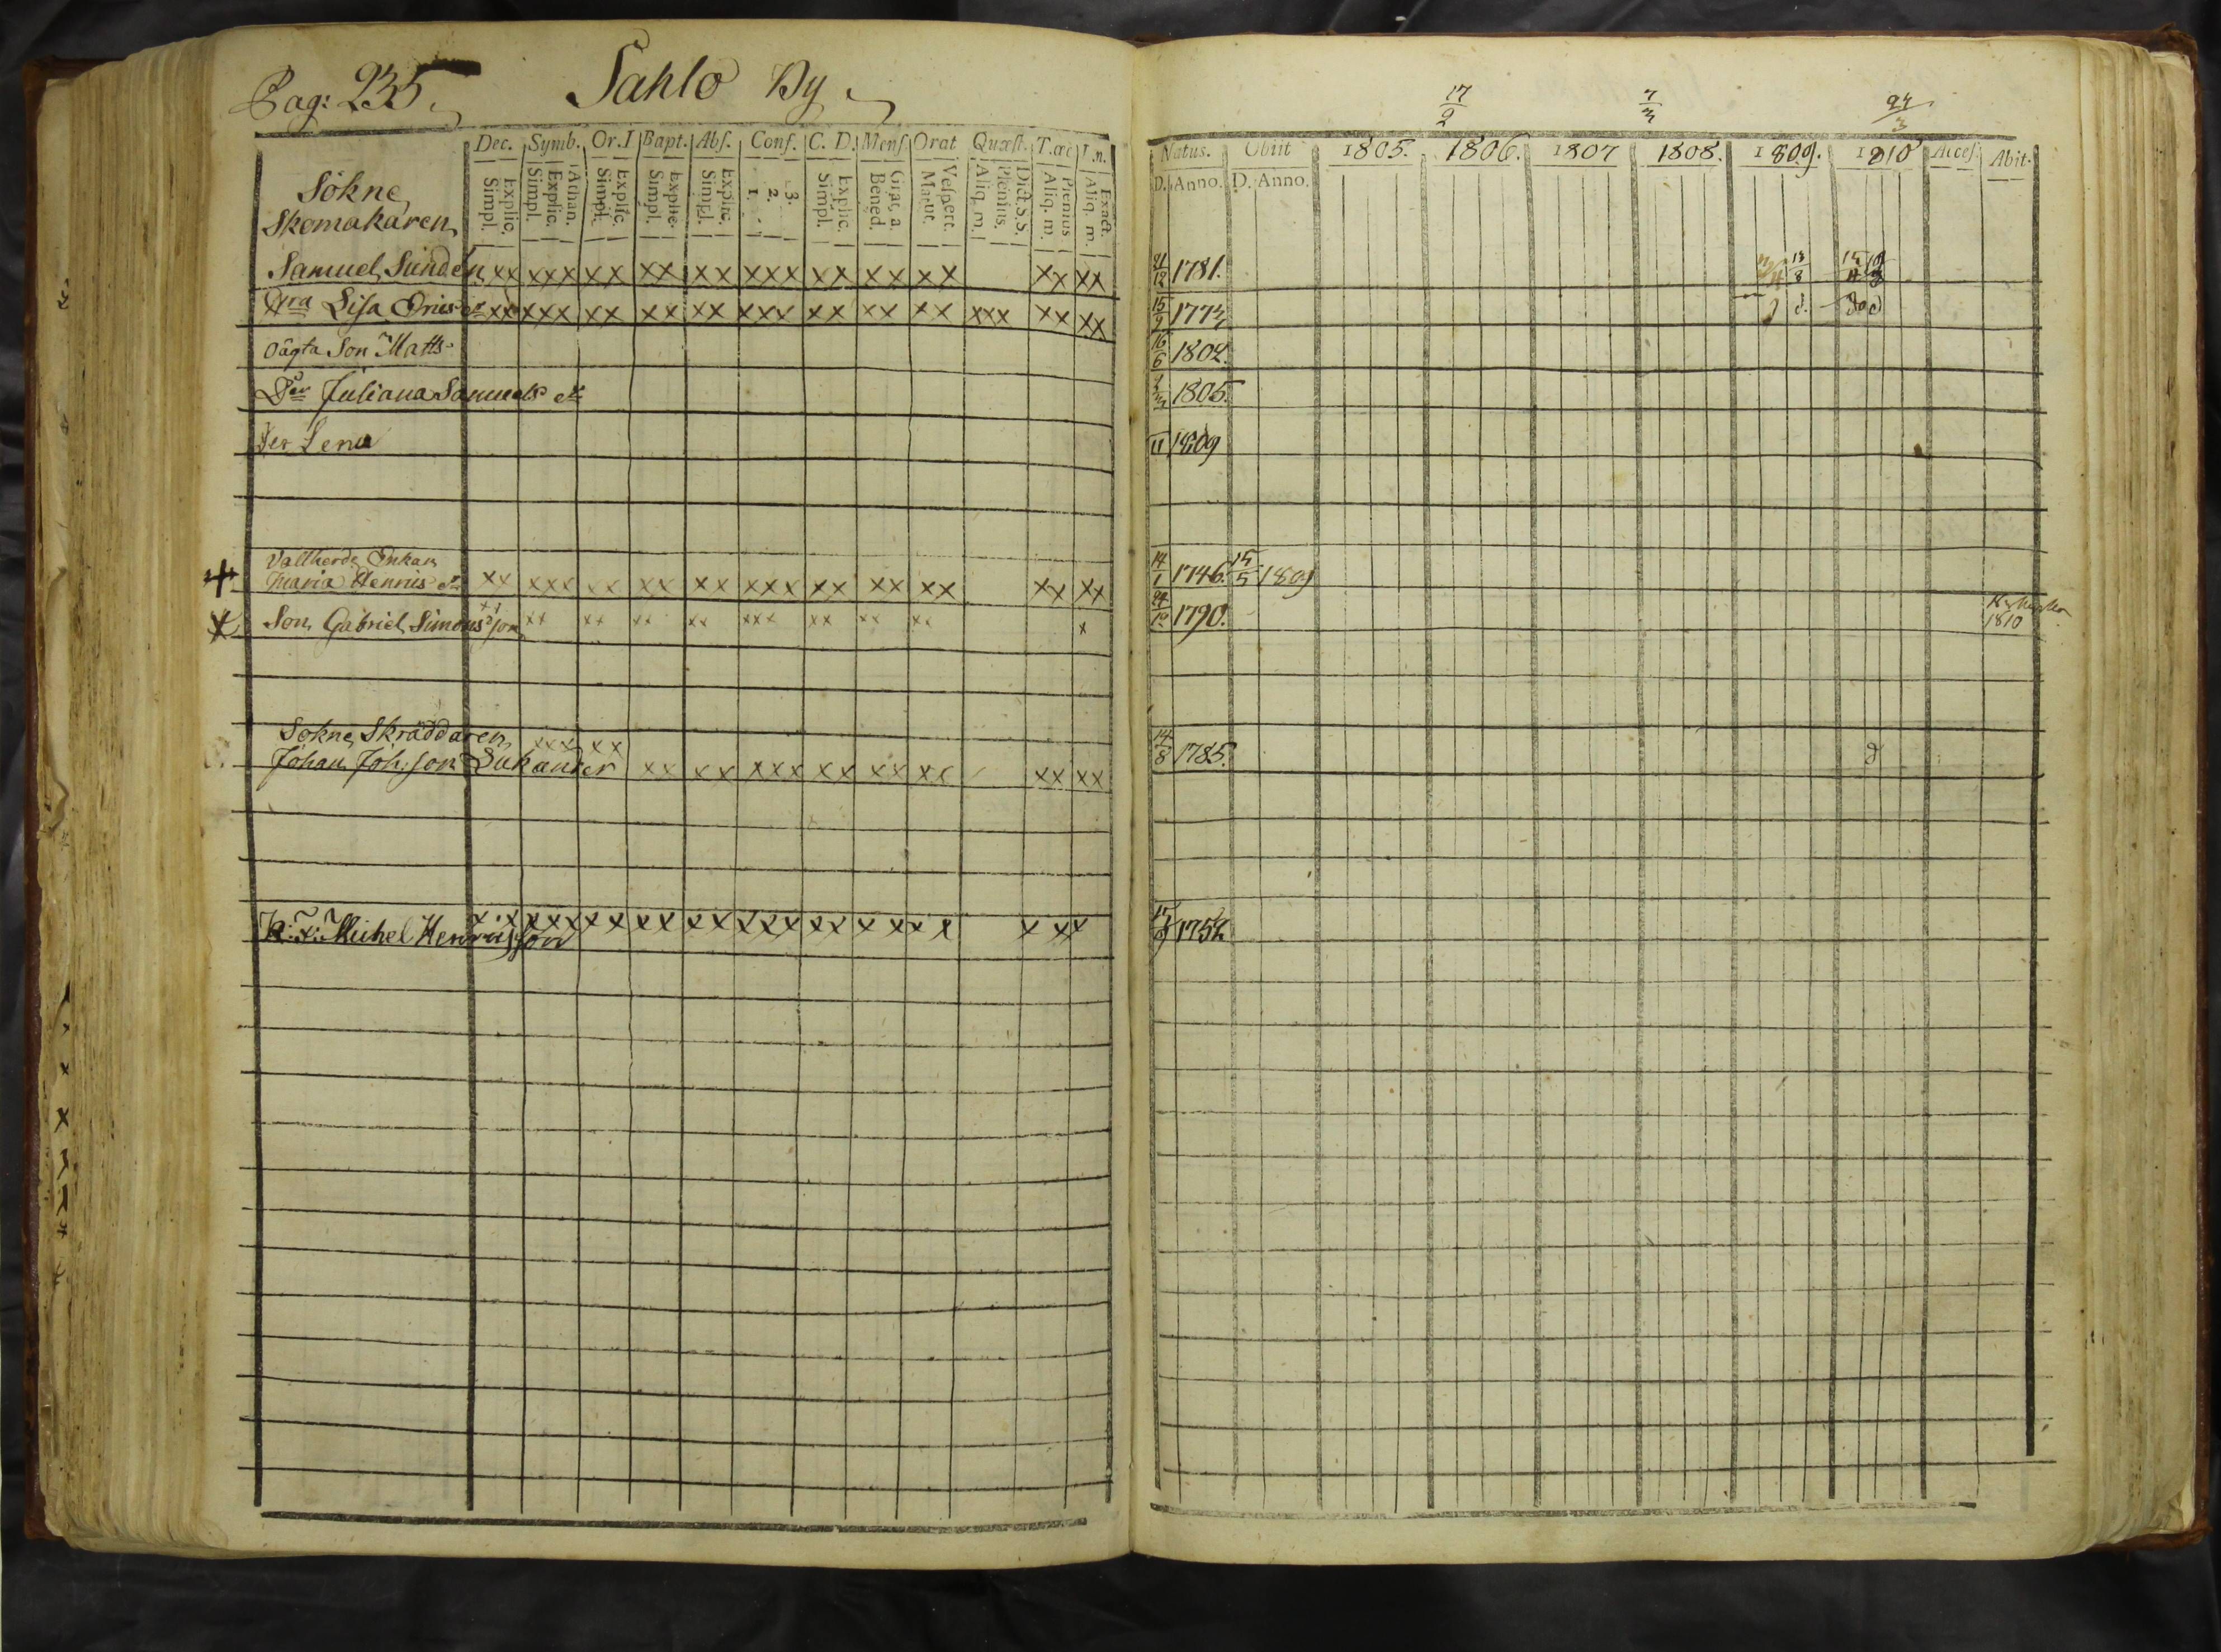 Pag: 235. Sahlo By
Dec. Symb. Or. Bapt. Abs. Conf. C. D. Mens. Orat Quæst. T.œc
Explic. Simpl. Athan. Explic. Simpl. Explic. Simpl. Explic. Simpl. Explic. Simpl. 3. 2. 1. Explic. Simpl. Bened. Vespert. Matut. Dict. S.S. Plenius. Aliq. m. Plenius Aliq. m. Exact. Aliq. m.
Natus. Obiit 1805. 1806. 1807 1808. 1809. 1810 Acces. Abit.
D. Anno. D. Anno.
17/2 7/3 24/3
Sokne
Skomakaren
Samuel Sundén xx xxx xx xx xx xxx xx xx xx xx xx 21/12 1781. 13/8
Lisa xx xxx xx xx xx xxx xx xx xx xxx xx xx 15/9 1773
oägta Son Matts 16/6 1802.
Juliana Samuels dr 1805.
Lena 11 1809
Vallherde Enkan
Maria Henrics dr xx xxx xx xx xx xxx xx xx xx xx xx 14/1 1746. 15/5 1809
Son Gabriel Simons son xx xx xx xx xx xxx xx xx xx x 1790. 1810
Sokne Skräddaren xxx xx
Johan Joh: son xx xx xxx xx xx xx xx xx 14/8 1785.
Michel Henricsson xx xxx xx xx xx xxx xx x xx x x xx